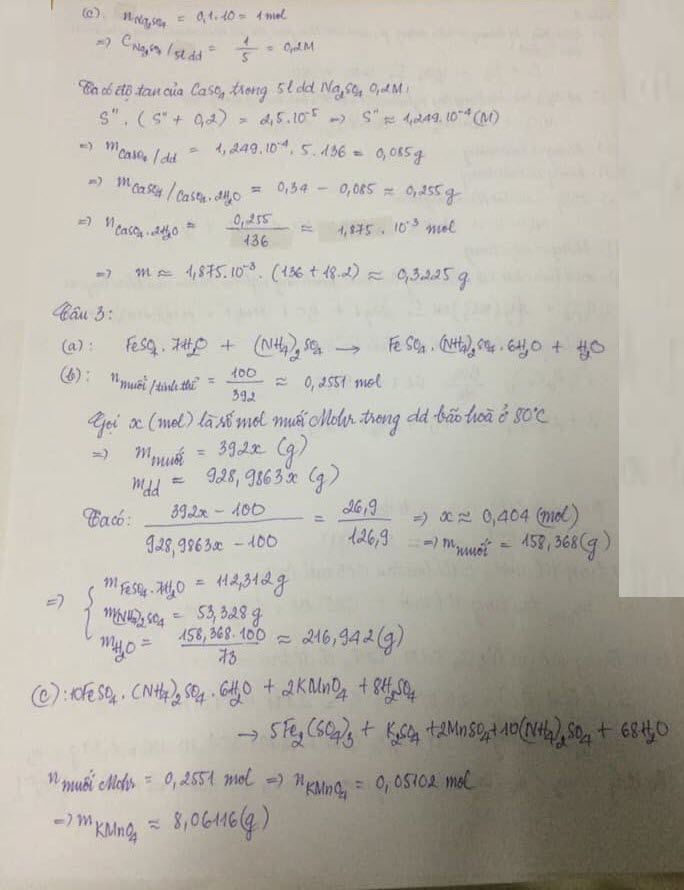 (c): nNa₂SO₄ = 0,1.10 = 1 mol
=> CNa₂SO₄/5l dd = 1/5 = 0,2M
Ta có độ tan của CaSO₄ trong 5l dd Na₂SO₄ 0,2M:
S". (S" + 0,2) = 2,5.10⁻⁵ => S" ≈ 1,249.10⁻⁴ (M)
=> mCaSO₄/dd = 1,249.10⁻⁴. 5. 136 = 0,085g
=> mCaSO₄/CaSO₄.2H₂O = 0,34 - 0,085 ≈ 0,255g
=> nCaSO₄.2H₂O = 0,255/136 ≈ 1,875. 10⁻³ mol
=> m ≈ 1,875.10⁻³. (136 + 18.2) ≈ 0,3225 g
Câu 3:
(a): FeSO₄.7H₂O + (NH₄)₂SO₄ → FeSO₄.(NH₄)₂SO₄.6H₂O + H₂O
(b): nmuối/tinh thể = 100/392 ≈ 0,2551 mol
Gọi x (mol) là số mol muối Mohr trong dd bão hoà ở 80°C
=> mmuối = 392x (g)
mdd = 928,9863x (g)
Ta có: (392x - 100)/(928,9863x - 100) = 26,9/126,9 => x ≈ 0,404 (mol)
=> mmuối = 158,368(g)
=> { mFeSO₄.7H₂O = 112,312g
m(NH₄)₂SO₄ = 53,328g
mH₂O = 158,368.100/73 ≈ 216,942(g)
(c): 10FeSO₄.(NH₄)₂SO₄.6H₂O + 2KMnO₄ + 8H₂SO₄
→ 5Fe₂(SO₄)₃ + K₂SO₄ + 2MnSO₄ + 10(NH₄)₂SO₄ + 68H₂O
nmuối Mohr = 0,2551 mol => nKMnO₄ = 0,05102 mol
=> mKMnO₄ ≈ 8,06116(g)